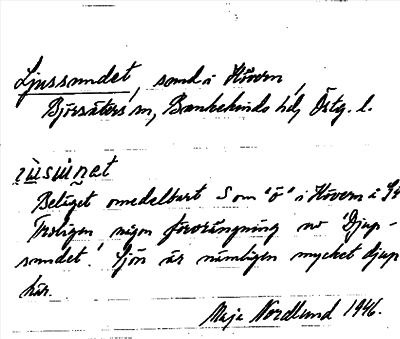 Ljussundet, sund i Hövern,
Björsäters sn, Bankekinds hd, Östg. l.
Beläget omedelbart S om "ö" i Hövern i
Troligen någon förvrängning av 'Djup-
sundet'. Sjön är nämligen mycket djup
här.
Maja Nordlund 1946.